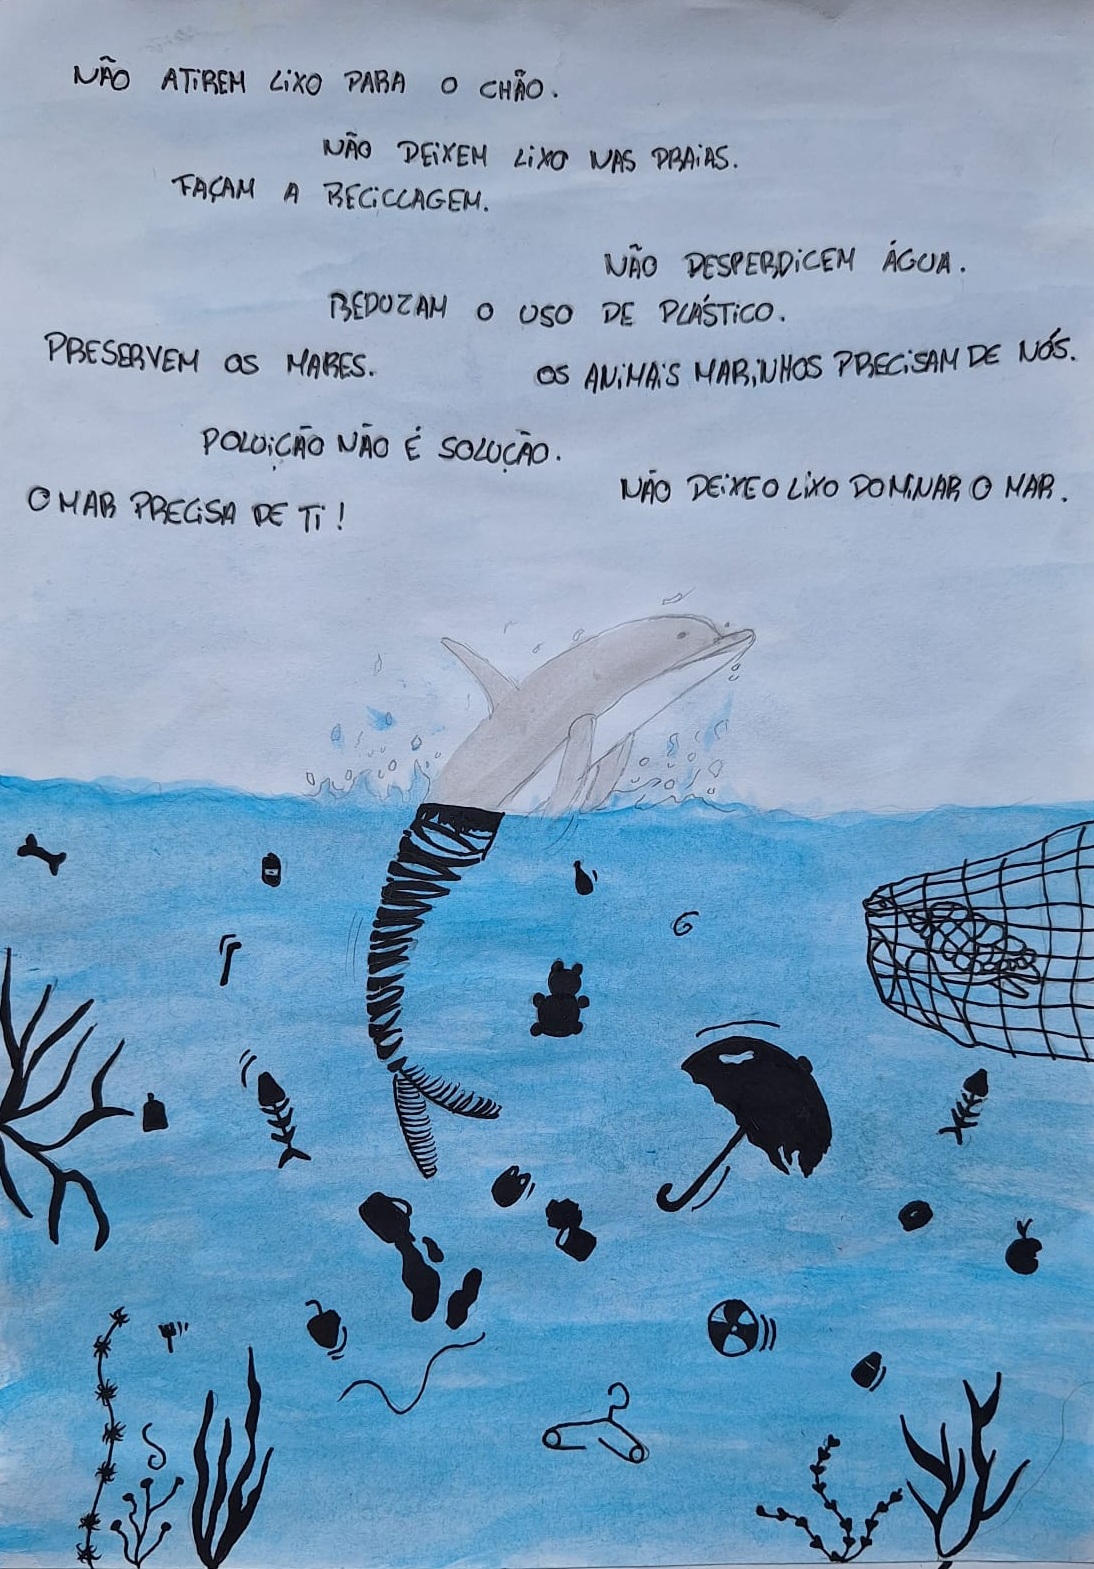 NÃO ATIREM LIXO PARA O CHÃO.
NÃO DEIXEM LIXO NAS PRAIAS.
FAÇAM A RECICLAGEM.
NÃO DESPERDICEM ÁGUA.
REDUZAM O USO DE PLÁSTICO.
PRESERVEM OS MARES.
OS ANIMAIS MARINHOS PRECISAM DE NÓS.
POLUIÇÃO NÃO É SOLUÇÃO.
NÃO DEIXE O LIXO DOMINAR O MAR.
O MAR PRECISA DE TI!